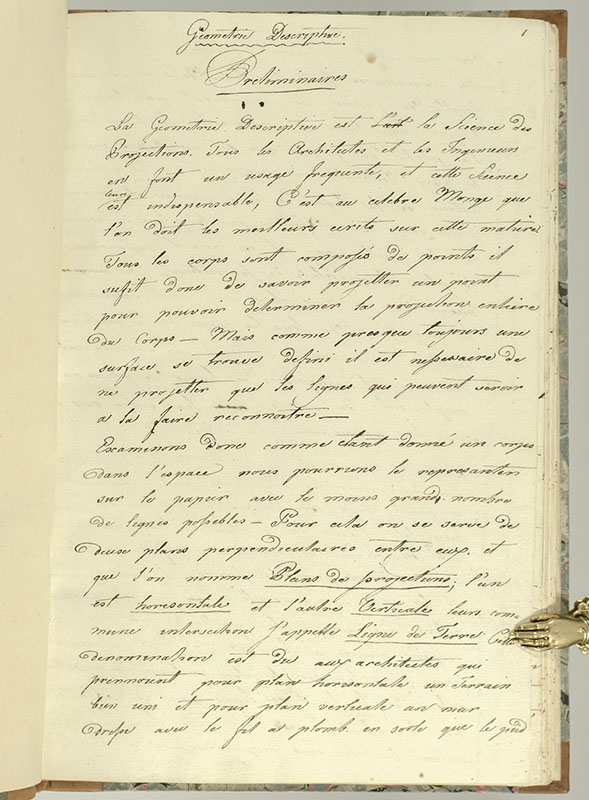 1
Geometrie Descriptive.
Preliminaires
La Geometrie Descriptive est l'art la Science des
Projections. Tous les Architectes et les Ingenieurs
en font un usage frequente, et cette Science
leurs
est indispensable, C'est au celebre Monge que
l'on doit les meilleurs ecrits sur cette matiere
Tous les corps sont composés de points il
sufit donc de savoir projetter un point
pour pouvoir determiner la projection entiere
du Corps — Mais comme presque toujours une
surface se trouve defini il est nessessaire de
ne projetter que les lignes qui peuvent servir
a la faire reconnoitre —
Examinons donc comme etant donné un corps
dans l'espace nous pourrons le representer
sur le papier avec le moins grand nombre
de lignes possibles — Pour cela on se serve de
deux plans perpendiculaires entre eux et
que l'on nomme Plans de projections; l'un
est horisontale et l'autre Verticale leurs com
mune intersection s'appelle Ligne de Terre. Cette
denomination est du aux architectes qui
prennount pour plan horisontale un Terrain
bien uni et pour plan verticale un mur
dresse avec le fil a plomb en sorte que le pied